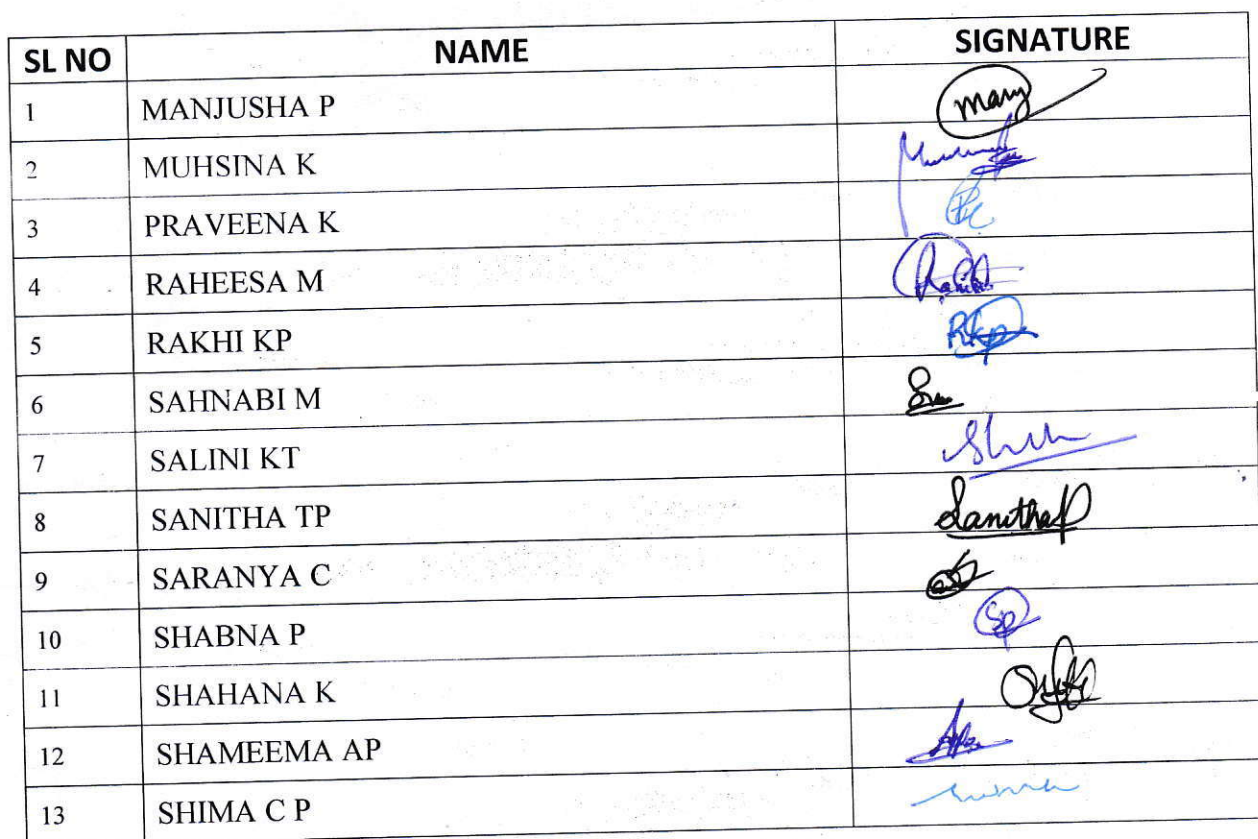 SL NO NAME SIGNATURE
1 MANJUSHA P
2 MUHSINA K
3 PRAVEENA K
4 RAHEESA M
5 RAKHI KP RKP
6 SAHNABI M
7 SALINI KT
8 SANITHA TP Sanitha P
9 SARANYA C
10 SHABNA P SP
11 SHAHANA K
12 SHAMEEMA AP
13 SHIMA C P